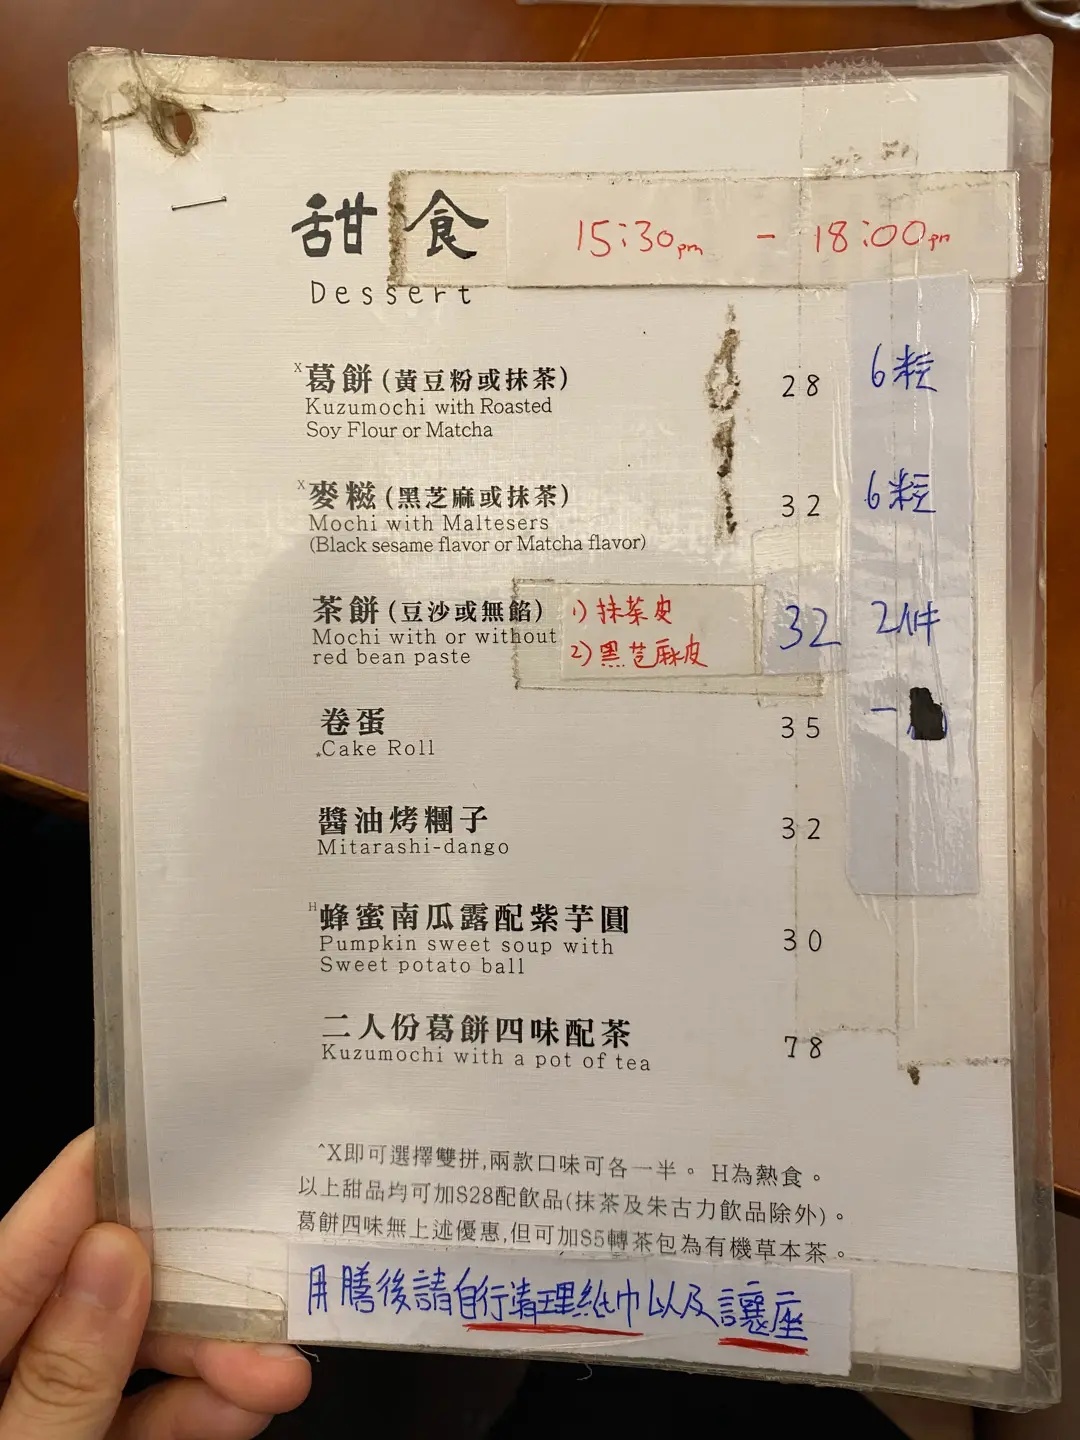 甜食 15:30pm - 18:00pm
Dessert
X葛餅(黃豆粉或抹茶) 28 6粒
Kuzumochi with Roasted
Soy Flour or Matcha
X麥糍(黑芝麻或抹茶) 32 6粒
Mochi with Maltesers
(Black sesame flavor or Matcha flavor)
茶餅(豆沙或無餡) 1) 抹茶皮 32 2件
Mochi with or without
red bean paste 2) 黑芝麻皮
卷蛋 35 一
*Cake Roll
醬油烤糰子 32
Mitarashi-dango
H蜂蜜南瓜露配紫芋圓 30
Pumpkin sweet soup with
Sweet potato ball
二人份葛餅四味配茶 78
Kuzumochi with a pot of tea
^X即可選擇雙拼,兩款口味可各一半。 H為熱食。
以上甜品均可加$28配飲品(抹茶及朱古力飲品除外)。
葛餅四味無上述優惠,但可加$5轉茶包為有機草本茶。
用膳後請自行清理紙巾以及讓座